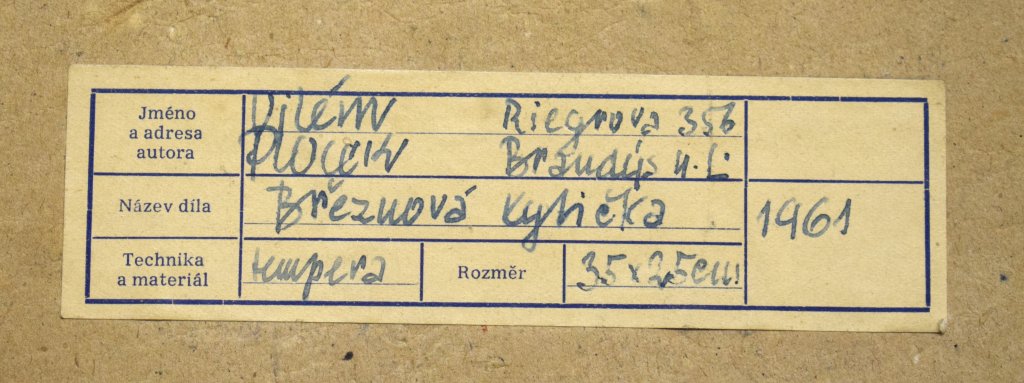 Jméno
a adresa
autora
Vilém Riegrova 356
Plocek Brandýs n. L.
Název díla
Březnová kytička
1961
Technika
a materiál
tempera
Rozměr
35x25cm